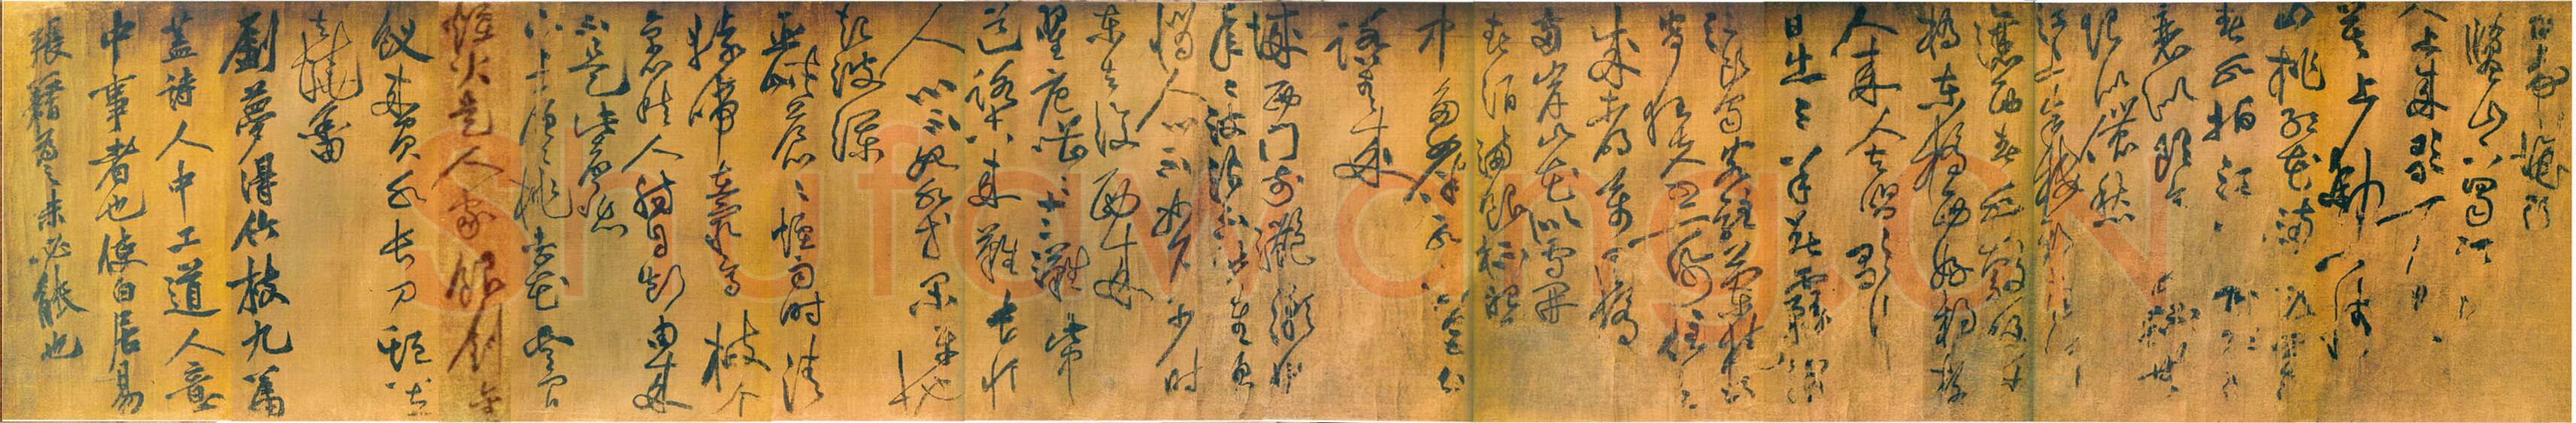 鹽山下蜀江
人上來歌一
莫上動鄉情
山桃紅花滿
春水拍江
衰似郎意
限似儂愁
江上朱樓新
瀼西春水縠紋生
橋東橋西好楊柳
人來人去唱歌行
日出三竿春霧消
江頭蜀客駐蘭橈
寄狂夫書一紙住在
成都萬里橋
兩岸山花似雪開
春酒滿銀杯
中多女伴永安宮外
踏青來
城西門前灩澦堆
年年波浪不能摧懊
惱人心不如石少時
東去復西來
瞿唐嘈嘈十二灘此中
道路古來難長恨
人心不如水等閑平地
起波瀾
巫峽蒼蒼煙雨時清
猿啼在最高枝个
裏愁人腸自斷由來
不是此聲悲
山上層層桃李花雲間
煙火是人家銀釧金
釵來負水長刀短笠
去燒畬
劉夢得竹枝九篇
蓋詩人中工道人意
中事者也使白居易
張籍為之未必能也
Shufawang.CN